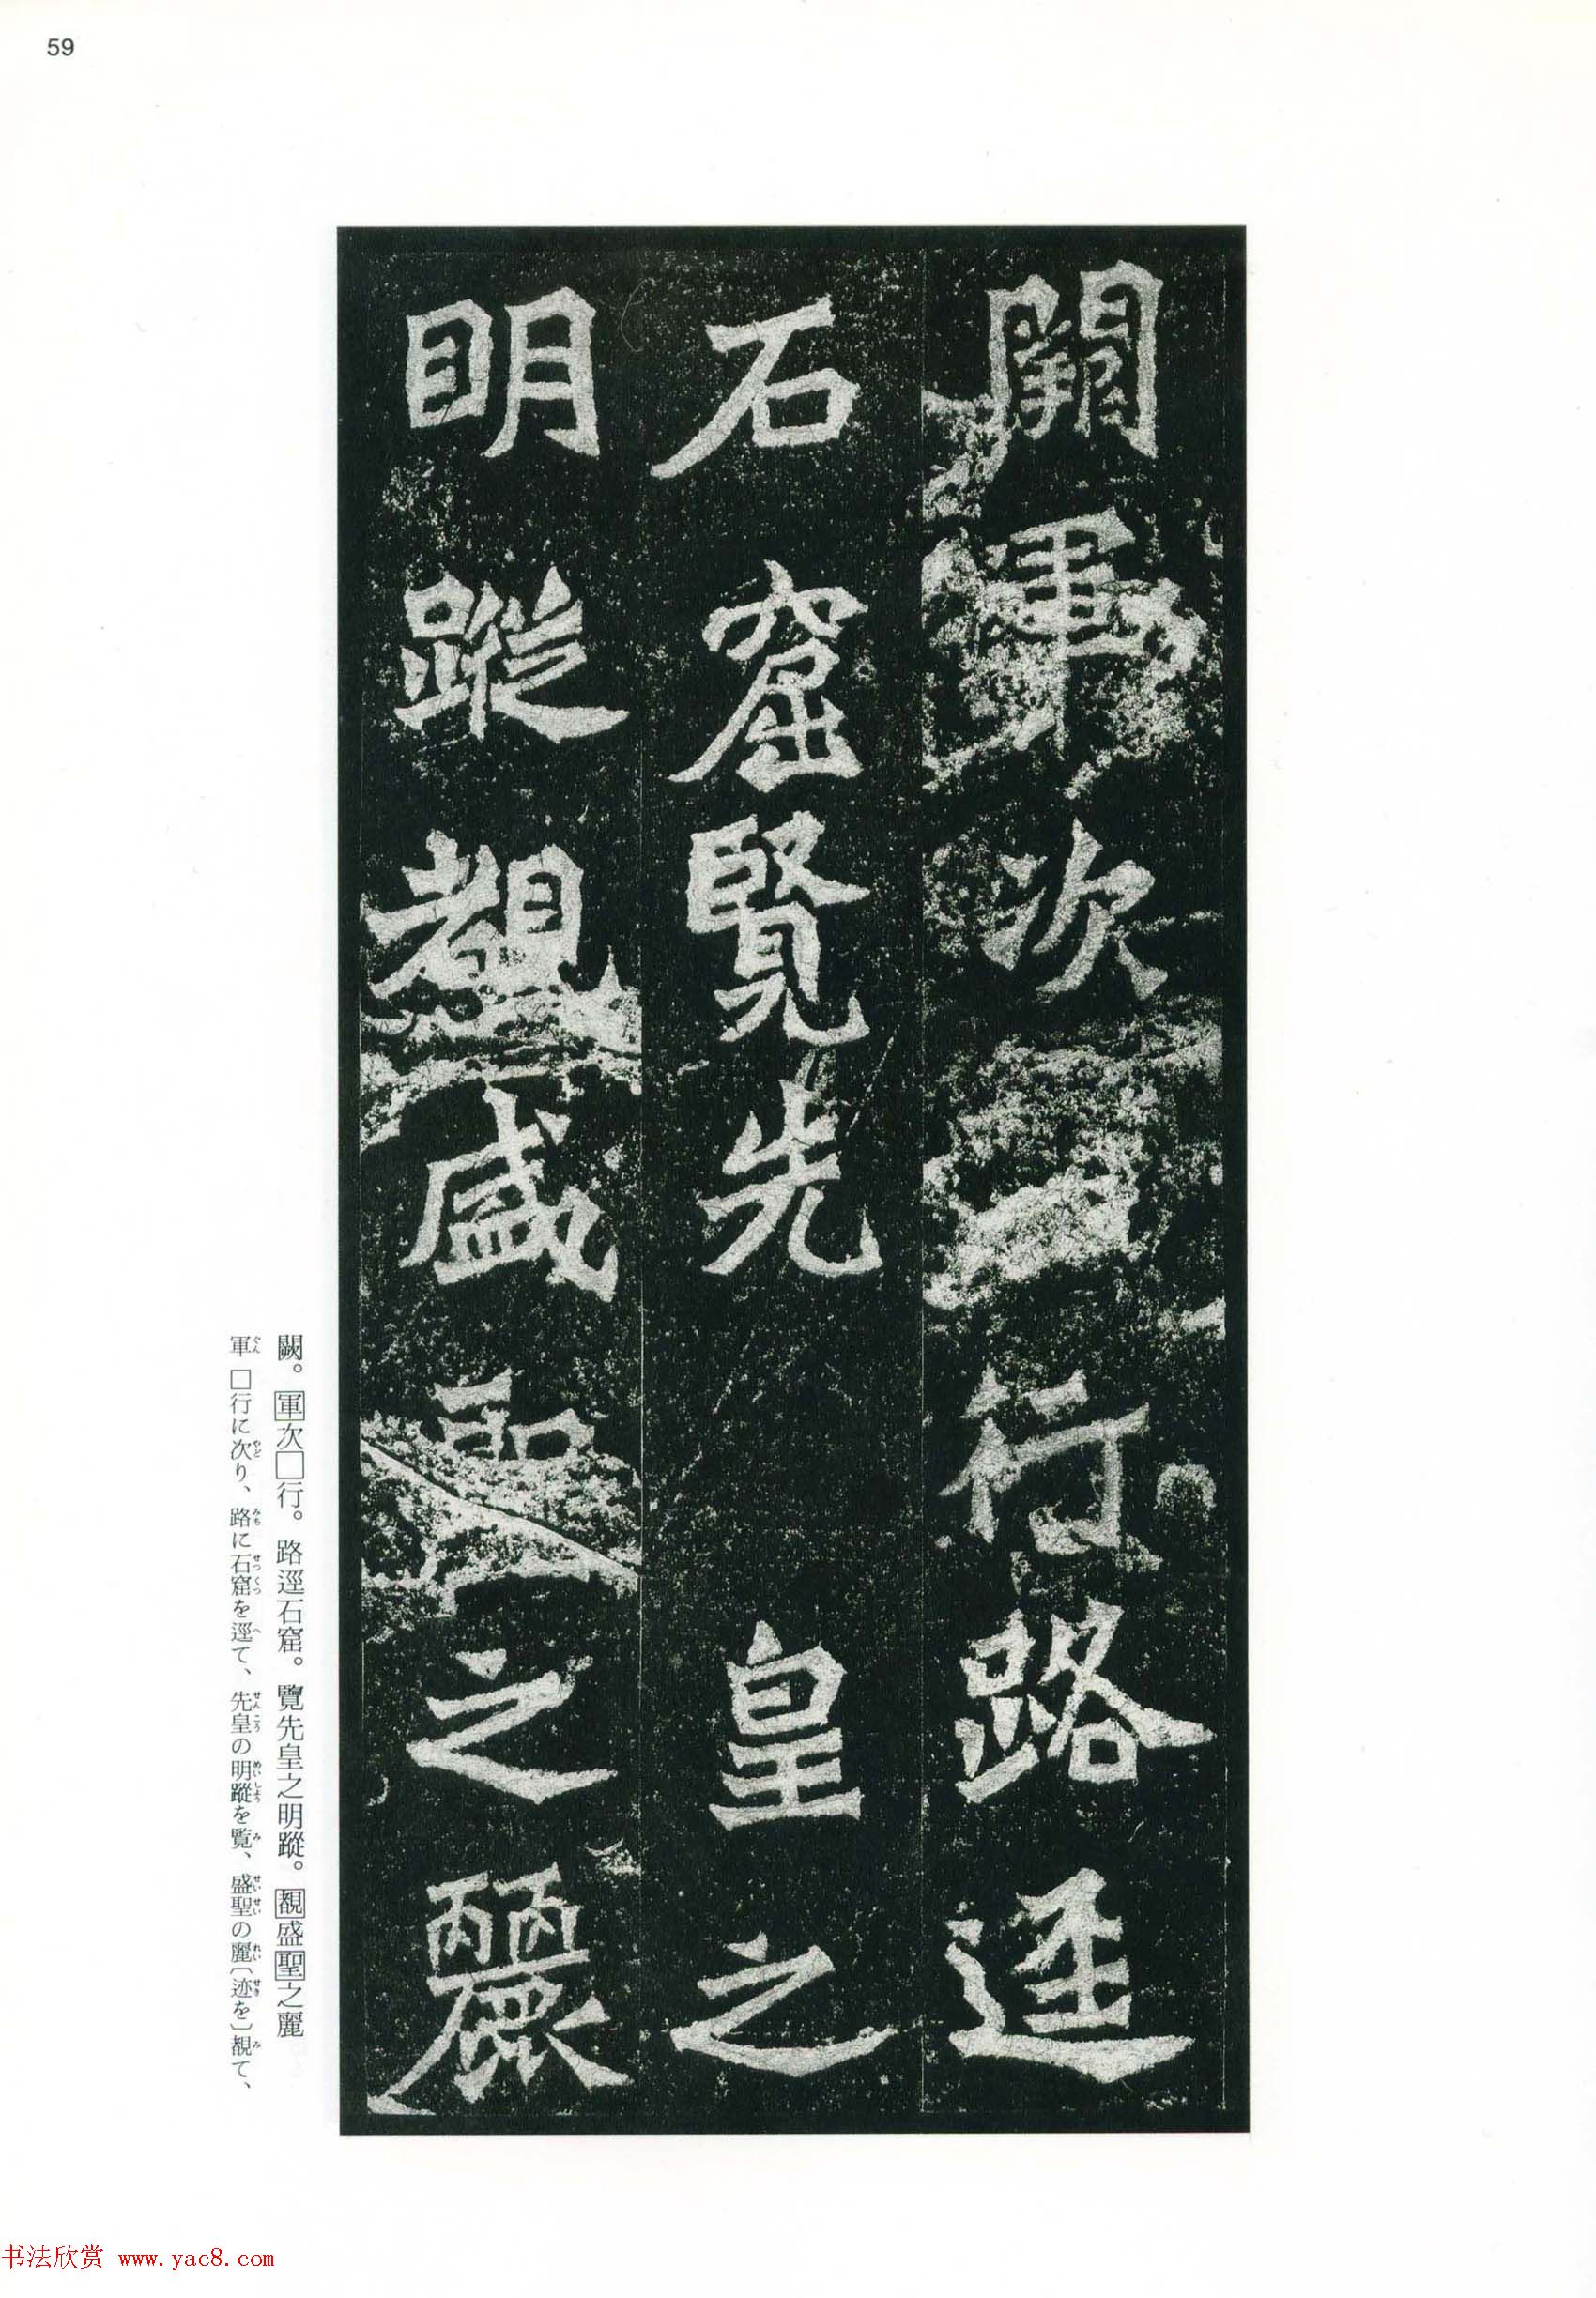 59
闕軍次行路逕
石窟覽先皇之
明蹤覩盛聖之麗
闕。軍次□行。路逕石窟。覽先皇之明蹤。覩盛聖之麗
軍□行に次り、路に石窟を逕て、先皇の明蹤を覧、盛聖の麗〔迹を〕覩て、
书法欣赏 www.yac8.com